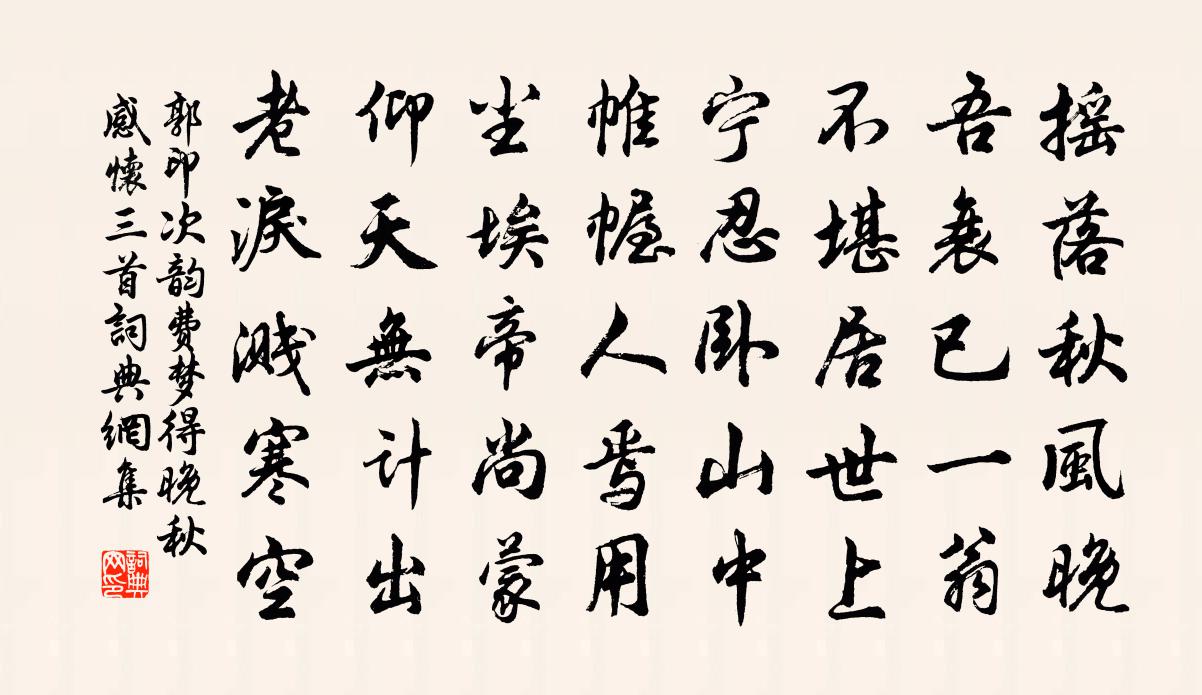 摇落秋風晚
吾衰已一翁
不堪居世上
宁忍卧山中
帷幄人焉用
尘埃帝尚蒙
仰天無计出
老淚溅寒空
郭印次韵费梦得晚秋
感懷三首詞典網集
詞典
网印